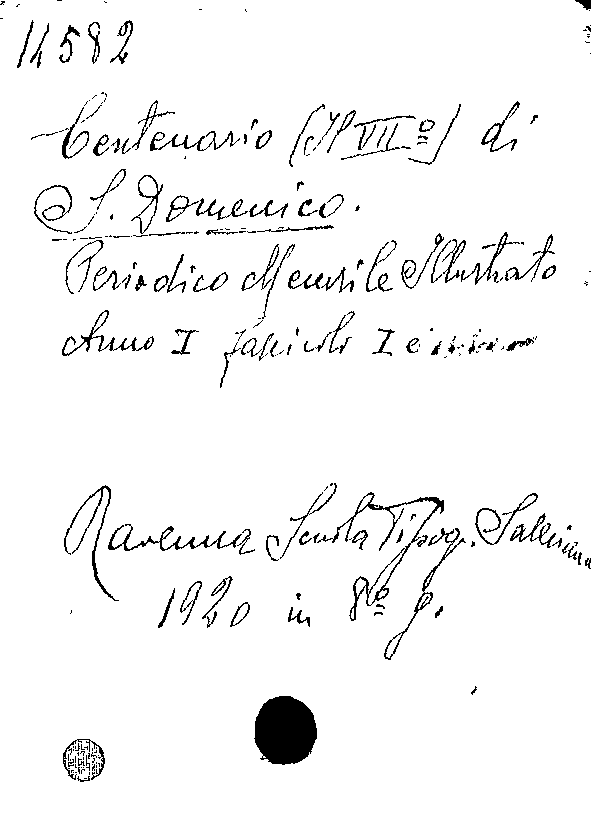 14582
Centenario (Il VIIº) di
S. Domenico.
Periodico Mensile Illustrato
Anno I fascicolo I e
Ravenna Scuola Tipog. Salesiana
1920 in 8º g.